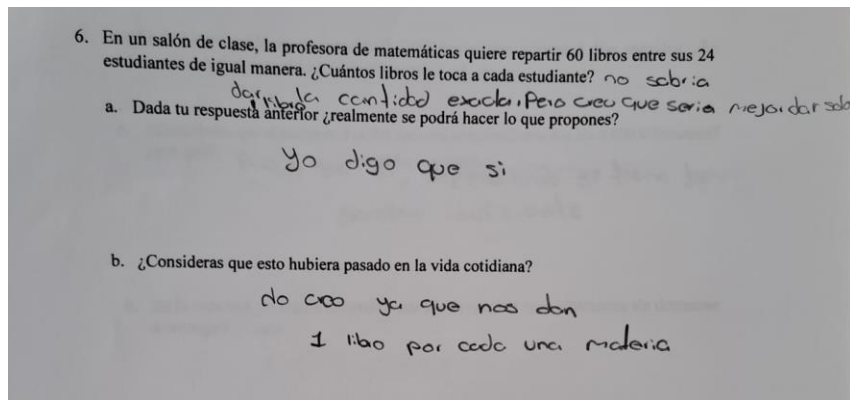 6. En un salón de clase, la profesora de matemáticas quiere repartir 60 libros entre sus 24
estudiantes de igual manera. ¿Cuántos libros le toca a cada estudiante? no sabria
dar la cantidad exacta, Pero creo que seria mejor dar solo
1 libro
a. Dada tu respuesta anterior ¿realmente se podrá hacer lo que propones?
Yo digo que si
b. ¿Consideras que esto hubiera pasado en la vida cotidiana?
No creo ya que nos dan
1 libro por cada una materia